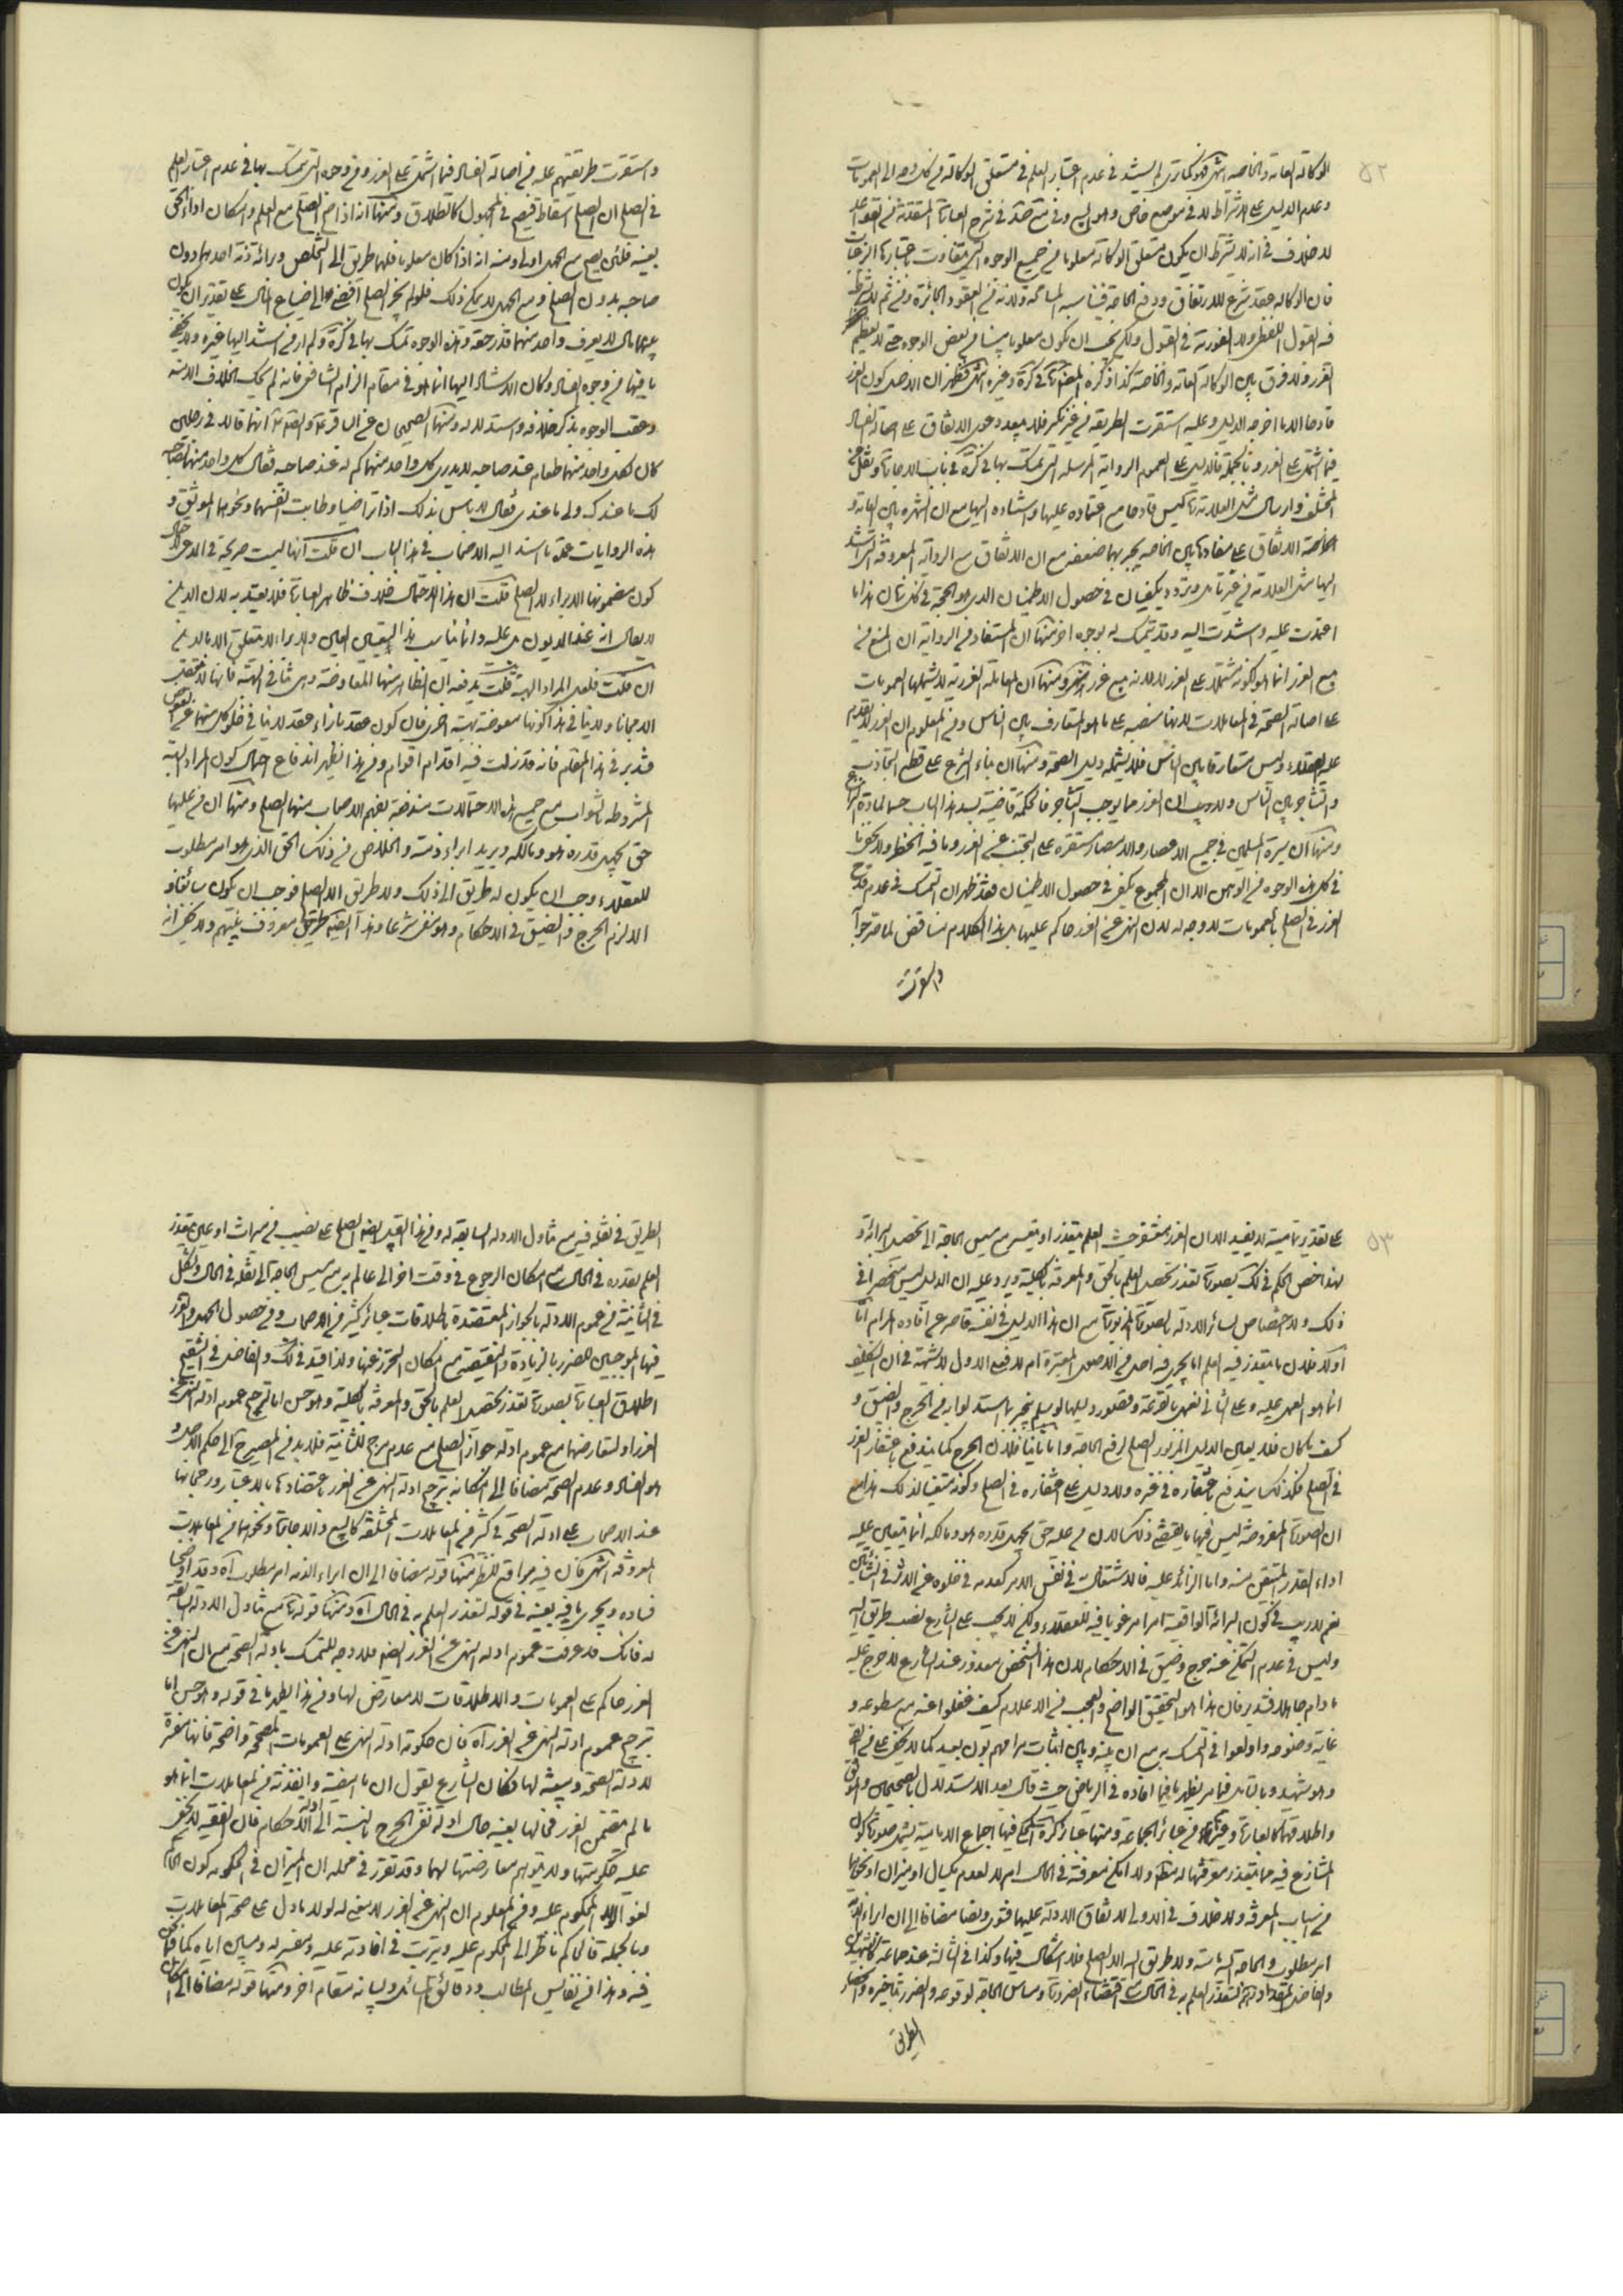 ٥٢
الوكالة العامة والخاصة انتهى فهو كما ترى لم يستند في عدم اعتبار العلم في متعلق الوكالة في كل وجه الى العمومات
وعدم الدليل على الاشتراط لا في موضع خاص وهو البيع وفي
لا خلاف في انه لا يشترط ان يكون متعلق الوكالة معلوما من جميع الوجوه التي يتفاوت باعتبارها الرغبات
فان الوكالة عقد شرع للارتفاق ودفع الحاجة فيناسبه المسامحة ولانه من العقود الجائزة ومن ثم لا يشترط
فيه القبول اللفظي ولا الفورية في القبول ولكن يجب ان يكون معلوما مبينا من بعض الوجوه حتى لا يعظم
الغرر ولا فرق بين الوكالة العامة والخاصة كذا ذكره العلامة في كرة وغيره انتهى فظهر ان الاصل كون الغرر
قادحا الا ما اخرجه الدليل وعليه استقرت الطريقة من غير نكير فلا يبعد دعوى الاتفاق على اصالة الفساد
فيما اشتمل على الغرر وبالجملة فالدليل على العموم الرواية المرسلة التي تمسك بها في كرة في باب الاجارة ونقل عن
المختلف وارسال مثل العلامة ليس قادحا مع اعتماده عليها واستناده اليها مع ان الشهرة بين العامة و
الخاصة الاتفاق على مفادها بين الخاصة يجبر بهما ضعفه مع ان الاتفاق مع الرواية المعروفة التي استند
اليها مثل العلامة من غير تامل وتردد يكفيان في حصول الاطمينان الذي هو الحجة في كل شان هذا ما
اعتمدت عليه واستندت اليه وقد يتمسك له بوجوه اخر منها ان المستفاد من الرواية ان المنع من
بيع الغرر انما هو لكونه مشتملا على الغرر لا لانه بيع غرر انتهى ومنها ان المعاملة الغررية لا يشملها العمومات
على اصالة الصحة في المعاملات لانها منصبة على ما هو المتعارف بين الناس ومن المعلوم ان الغرر لا يقدم
عليه العقلاء وليس متعارفا بين الناس فلا يشمله دليل الصحة ومنها ان بناء الشرع على قطع التجاذب
والتشاجر بين الناس ولا ريب ان الغرر مما يوجب التشاجر فالحكمة قاضية بسد هذا الباب حسما لمادة النزاع
ومنها ان سيرة المسلمين في جميع الاعصار والامصار مستقرة على التجنب عن الغرر وما فيه الخطر ولا يخفى ما
في كل هذه الوجوه من الوهن الا ان المجموع يكفي في حصول الاطمينان فقد ظهر ان التمسك في عدم قدح
الغرر في الصلح بالعمومات لا وجه له لان النهي عن الغرر حاكم عليها بل هذا الكلام مناقض لما صرحوا
واستقرت
واستقرت طريقتهم عليه من اصالة الفساد فيما اشتمل على الغرر ومن وجوه التي تمسك بها في عدم اعتبار العلم
في الصلح ان الصلح اسقاط فيصح في المجهول كالطلاق ومنها انه اذا صح الصلح مع العلم وامكان اداء الحق
بعينه فلئن يصح مع الجهل اولى ومنه انه اذا كان معلوما فلهما طريق الى التخلص وبرائة ذمة احدهما دون
صاحبه بدون الصلح ومع الجهل لا يمكن ذلك فلو لم يجز الصلح افضى الى ضياع المال على تقدير ان يكون
بينهما مال لا يعرف واحد منهما قدر حقه وهذه الوجوه تمسك بها في كرة ولم ار من استند اليها غيره ولا يخفى
ما فيها من وجوه الفساد وكان الاستناد اليها انما هو في مقام الزام الشافعي فانه لم يحك الخلاف الا منه
وعقب الوجوه بذكر خلافه واستدلاله ومنها الصحيحان عن الباقر ع والصادق ع انهما قالا في رجلين
كان لكل واحد منهما طعام عند صاحبه لا يدري كل واحد منهما كم له عند صاحبه فقال كل واحد منهما لصاحبه
لك ما عندك ولي ما عندي فقال لا باس بذلك اذا تراضيا وطابت انفسهما ونحوهما الموثق و
هذه الروايات عمدة ما استند اليه الاصحاب في هذا الباب ان قلت انها ليست صريحة في المدعى لاحتمال
كون مضمونها الابراء لا الصلح قلت ان هذا الاحتمال خلاف ظاهر العبارة فلا يعتد به لان الدين
لا يقال انه عند المديون بل عليه وانما يناسب هذا التعبير العين والابراء لا يتعلق الا بالدين
ان قلت فلعل المراد الهبة قلت يدفعه ان الظاهر منها المعاوضة وهي تنافي الهبة فانها لا تقتضي
الا مجانا ولا ينافي هذا كونها معوضة بهبة اخرى فان كون عقد بازاء عقد لا ينافي خلو كل منهما عن العوض
فتدبر في هذا المقام فانه قد زلت فيه اقدام اقوام ومن هذا يظهر اندفاع احتمال كون المراد الهبة
المشروطة بالثواب مع جميع هذه الاحتمالات مندفعة بفهم الاصحاب منها الصلح ومنها ان من عليها
حق يجهل قدره هو ومالكه ويريد ابراء ذمته والخلاص من ذلك الحق الذي هو امر مطلوب
للعقلاء وجب ان يكون له طريق الى ذلك ولا طريق الا الصلح فوجب ان يكون سائغا و
الا لزم الحرج والضيق في الاحكام وهو منفي شرعا وهذا ايضا طريق معروف بينهم ولا يخفى انه
٥٣
على تقدير تماميته لا يفيد الا ان الغرر مغتفر حيث العلم يتعذر او يتعسر مع مسيس الحاجة الى تحصيل البرائة و
لهذا خص الحكم في لك بصورة تعذر تحصيل العلم بالحق والمعرفة بالكلية ويرد عليه ان الدليل ليس منحصرا في
ذلك ولا اختصاص لسائر الادلة بالصورة المزبورة مع ان هذا الدليل في نفسه قاصر عن افادة المرام اما
اولا فلان ما يتعذر فيه العلم اما يجري فيه احد من الاصول المعتبرة ام لا فعلى الاول لا شبهة في ان التكليف
انما هو العمل عليه وعلى الثاني فهي بالقرعة وقصور دليلها لو سلم ينجبر بما استدلوا به من الحرج والضيق و
كيف ما كان فلا يعين الدليل المزبور الصلح لرفع الحاجة واما ثانيا فلان الحرج كما يندفع باغتفار الغرر
في الصلح فكذلك يندفع باغتفاره في غيره ولا دليل على اغتفاره في الصلح وكونه متعينا لذلك هذا مع
ان الصورة المفروضة ليس فيها ما يقتضي ذلك لان من عليه حق يجهل قدره هو ومالكه انما يتعين عليه
اداء القدر المتيقن منه واما الزائد عليه فالاشتغال في نفس الامر كعدمه في خلوه عن الاثر في النشأتين
نعم لا ريب في كون البرائة الواقعية امرا مرغوبا فيه للعقلاء ولكن لا يجب على الشارع نصب طريق اليه
وليس في عدم التمكن عنه حرج وضيق في الاحكام لان هذا الشخص معذور عند الشارع لا حرج عليه
ما دام جاهلا فتدبر فان هذا هو التحقيق الواضح والعجب من الاعلام كيف غفلوا عنه مع سطوعه و
غاية وضوحه واولعوا في التمسك به مع ان بينه وبين اثبات مرامهم بون بعيد كما لا يخفى على من القى السمع
وهو شهيد وبالتامل فيما مر يظهر ما فيما افاده في الرياض حيث قال بعد الاستدلال بالصحيحين والموثق
واطلاقها كالعبارة وغيرها من عبائر الجماعة ومنها عبارة كرة المحكي فيها اجماع الامامية يشمل صورة كون
المتنازع فيه مما يتعذر معرفتها له مطلقا ولما امكن معرفته في الحال ام لا لعدم مكيال او ميزان او نحوهما
من اسباب المعرفة ولا خلاف في الاولى لاتفاق الادلة عليها فتوى ونصا مضافا الى ان ابراء الذمة
امر مطلوب والحاجة اليه ماسة ولا طريق اليه الا الصلح فلا اشكال فيها وكذا في الثالثة عند جماعة كالشهيدين
والفاضل المقداد وغيرهم لتعذر العلم به في الحال مع اقتضاء الضرورة ومساس الحاجة لوقوعه والضرر بتاخيره وانحصار
الطريق
الطريق في نقله فيه مع تناول الادلة السابقة له ومن هذا القبيل ايضا الصلح على نصيب من ميراث او عين يتعذر
العلم بقدره في الحال مع امكان الرجوع في وقت اخر الى عالم به مع مسيس الحاجة الى نقله في الحال ويشكل
في الثانية من عموم الادلة بالجواز المعتضدة باطلاقات عبائر كثير من الاصحاب ومن حصول الجهل والغرر
فيها الموجبين للضرر بالزيادة والنقيصة مع امكان التحرز عنها ولذا قيد في لك والفاضل في التنقيح
اطلاق العبارة بصورة تعذر تحصيل العلم بالحق والمعرفة بالكلية وهو حسن اما لترجيح عموم ادلة النهي عن
الغرر او لتعارضها مع عموم ادلة جواز الصلح مع عدم مرجح للثانية فلا بد من المصير الى حكم الاصل و
هو الفساد وعدم الصحة مضافا الى امكان ترجيح ادلة النهي عن الغرر باعتضادها بالاعتبار ورجحانها
عند الاصحاب على ادلة الصحة في كثير من المعاملات المختلفة كالبيع والاجارة ونحوهما من المعاملات
المعروفة انتهى فان فيه مواقع للنظر منها قوله مضافا الى ان ابراء الذمة امر مطلوب اه وقد اوضحنا
فساده ويجري ما فيه بعينه في قوله لتعذر العلم به في الحال اه ومنها قوله مع تناول الادلة السابقة
له فانك قد عرفت عموم ادلة النهي عن الغرر ايضا فلا وجه للتمسك بادلة الصحة مع ان النهي عن
الغرر حاكم على العمومات والاطلاقات لا معارض لها ومن هذا يظهر ما في قوله وهو حسن اما
ترجيح عموم ادلة النهي عن الغرر اه فان حكومة ادلة النهي على العمومات المصححة واضحة فانها مفسرة
لادلة الصحة ومبينة لها فكان الشارع يقول ان ما امضيته وانفذته من المعاملات انما هو
ما لم يتضمن الغرر فحالها بعينه حال ادلة نفي الحرج بالنسبة الى ادلة الاحكام فان الفقيه لا يخفى
عليه حكومتها ولا يتوهم معارضتها لهما وقد تقرر في محله ان الميزان في الحكومة كون الحاكم
لغوا لولا المحكوم عليه ومن المعلوم ان النهي عن الغرر لا معنى له لولا ما دل على صحة المعاملات
وبالجملة فالحاكم ناظر الى المحكوم عليه ويترتب في افادته عليه ومفسر له ومبين اياه كما فيما نحن
فيه وهذا من نفايس المطالب ودقائق المسائل ولبيانه مقام اخر ومنها قوله مضافا الى امكان